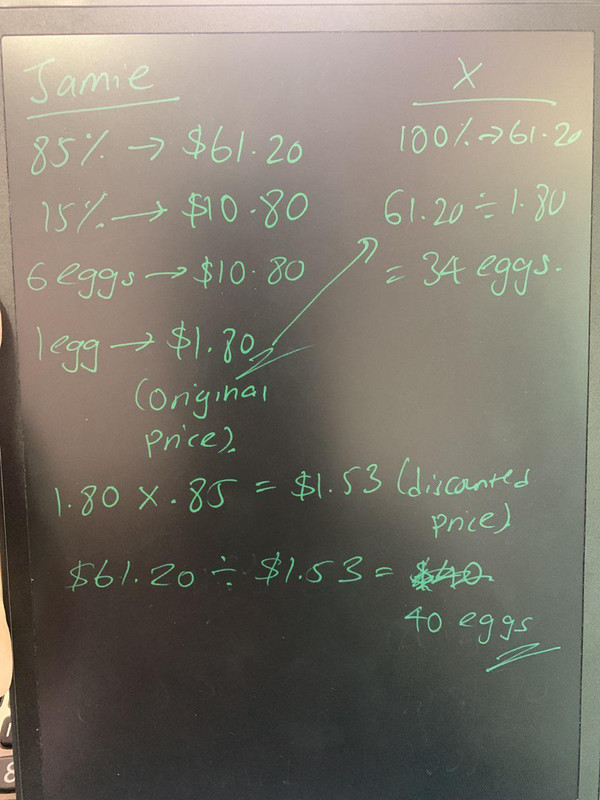 Jamie
85% → $61.20
15% → $10.80
6 eggs → $10.80
1 egg → $1.80
(original
price).
X
100% → 61.20
61.20 ÷ 1.80
= 34 eggs.
1.80 x .85 = $1.53 (discounted
price)
$61.20 ÷ $1.53 =
40 eggs